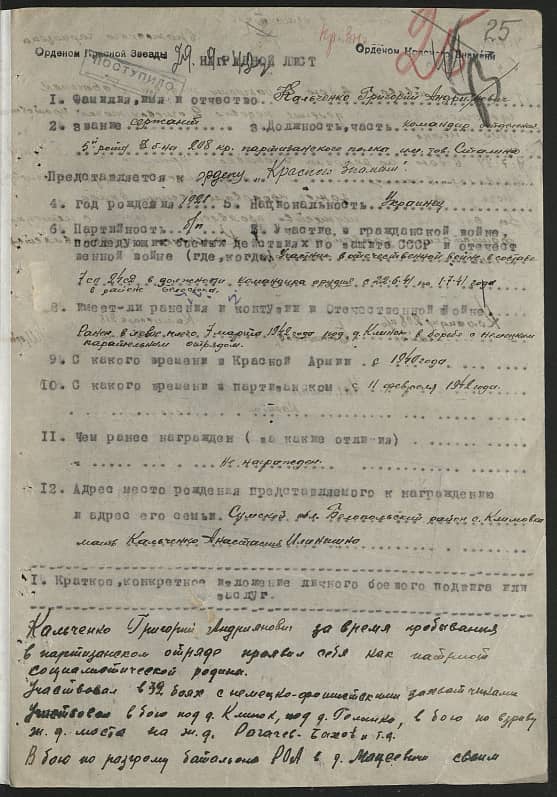 25
Кр. Зн.
Орденом Красной Звезды НАГРАДНОЙ ЛИСТ Орденом Красного Знамени
ПОСТУПИЛО
1. Фамилия, имя и отчество Кальченко Григорий Андриянович
2. звание сержант 3. Должность, часть командир отделения
5й роты 208 кр. партизанского полка им. тов. Сталина
Представляется к ордену "Красное Знамя"
4. год рождения 5. Национальность Украинец
6. Партийность б/п Участие в гражданской войне,
последующих боевых действиях по защите СССР и отечест
венной войне (где, когда) Участник в отечественной войне в составе
7 сп в должности командира орудия с 22.6.41 по 1.7.41 года
в районе
8. Имеет-ли ранения и контузии в Отечественной войне
Ранен в 7 марта года под д. Клинок в борьбе с немецким
карательным отрядом.
9. С какого времени в Красной Армии. с 1940 года.
10. С какого времени в партизанском с 11 февраля 1942 года.
11. Чем ранее награжден (за какие отличия)
Не награжден
12. Адрес место рождения представляемого к награждению
и адрес его семьи. Сумской обл. Белопольский район с. Климовка
мать Кальченко Анастасия
I. Краткое, конкретное изложение личного боевого подвига или
заслуг.
Кальченко Григорий Андриянович за время пребывания
в партизанском отряде проявил себя как патриот
социалистической родины.
Участвовал в 39 боях с немецко-фашистскими захватчиками
Участвовал в бою под д. Клинок, под д. в бою по взрыву
ж.д. моста на ж.д. Рогачев- и т.д.
В бою по разгрому батальона РОА в д. Мацевичи своим